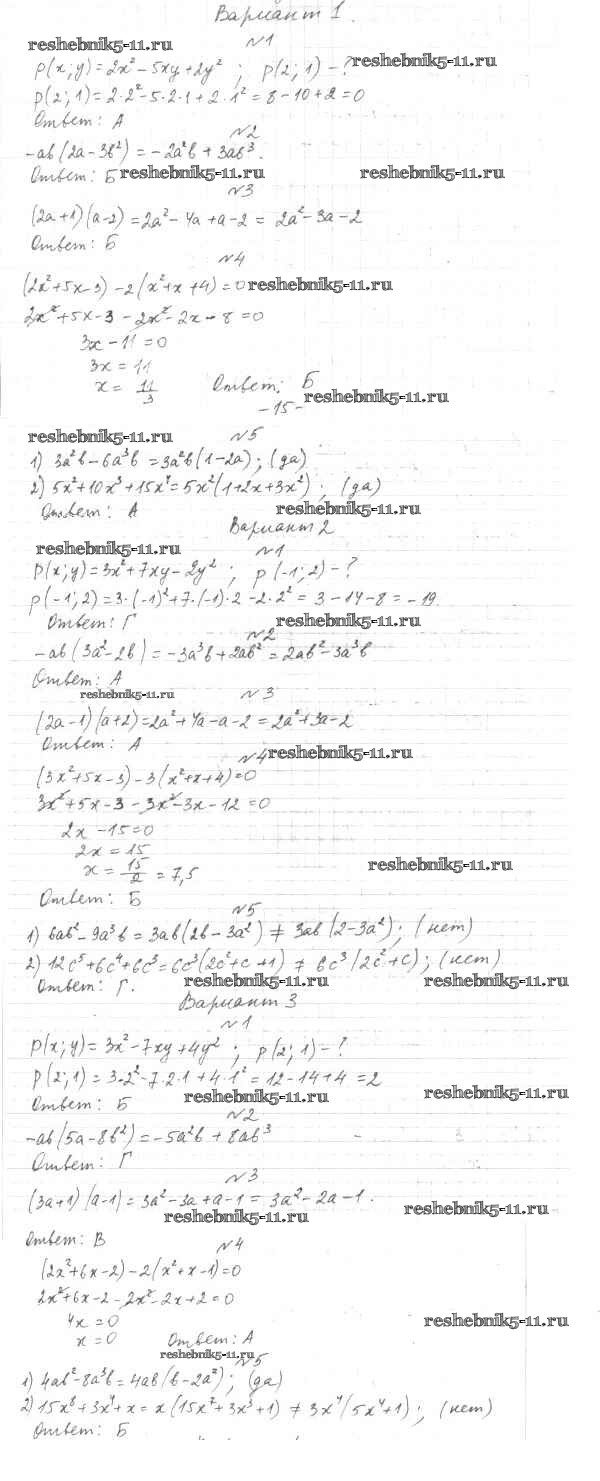 Вариант 1.
reshebnik5-11.ru
№1
p(x;y)=2x²-5xy+2y² ; p(2;1)-?
reshebnik5-11.ru
p(2;1)=2·2²-5·2·1+2·1²=8-10+2=0
Ответ: А
№2
-ab(2a-3b²)=-2a²b+3ab³.
Ответ: Б
reshebnik5-11.ru
reshebnik5-11.ru
№3
(2a+1)(a-2)=2a²-4a+a-2=2a²-3a-2
Ответ: Б
№4
(2x²+5x-3)-2(x²+x+4)=0
reshebnik5-11.ru
2x²+5x-3-2x²-2x-8=0
3x-11=0
3x=11
x=11/3
Ответ: Б
-15-
reshebnik5-11.ru
reshebnik5-11.ru
№5
1) 3a²b-6a³b=3a²b(1-2a); (да)
2) 5x²+10x³+15x⁴=5x²(1+2x+3x²); (да)
Ответ: А
reshebnik5-11.ru
Вариант 2
reshebnik5-11.ru
№1
p(x;y)=3x²+7xy-2y² ; p(-1;2)-?
p(-1;2)=3·(-1)²+7·(-1)·2-2·2²=3-14-8=-19.
Ответ: Г
reshebnik5-11.ru
№2
-ab(3a²-2b)=-3a³b+2ab²=2ab²-3a³b
Ответ: А
reshebnik5-11.ru
№3
(2a-1)(a+2)=2a²+4a-a-2=2a²+3a-2
Ответ: А
№4
reshebnik5-11.ru
(3x²+5x-3)-3(x²+x+4)=0
3x²+5x-3-3x²-3x-12=0
2x-15=0
2x=15
x=15/2=7,5
reshebnik5-11.ru
Ответ: Б
№5
1) 6ab²-9a³b=3ab(2b-3a²)≠3ab(2-3a²); (нет)
2) 12c⁵+6c⁴+6c³=6c³(2c²+c+1)≠6c³(2c²+c); (нет)
Ответ: Г.
reshebnik5-11.ru
reshebnik5-11.ru
Вариант 3
№1
p(x;y)=3x²-7xy+4y² ; p(2;1)-?
p(2;1)=3·2²-7·2·1+4·1²=12-14+4=2
Ответ: Б
reshebnik5-11.ru
reshebnik5-11.ru
№2
-ab(5a-8b²)=-5a²b+8ab³
Ответ: Г
№3
(3a+1)(a-1)=3a²-3a+a-1=3a²-2a-1.
reshebnik5-11.ru
reshebnik5-11.ru
Ответ: В
№4
(2x²+6x-2)-2(x²+x-1)=0
2x²+6x-2-2x²-2x+2=0
4x=0
reshebnik5-11.ru
x=0
Ответ: А
reshebnik5-11.ru
№5
1) 4ab²-8a³b=4ab(b-2a²); (да)
2) 15x⁸+3x⁴+x=x(15x⁷+3x³+1)≠3x⁴(5x⁴+1); (нет)
Ответ: Б